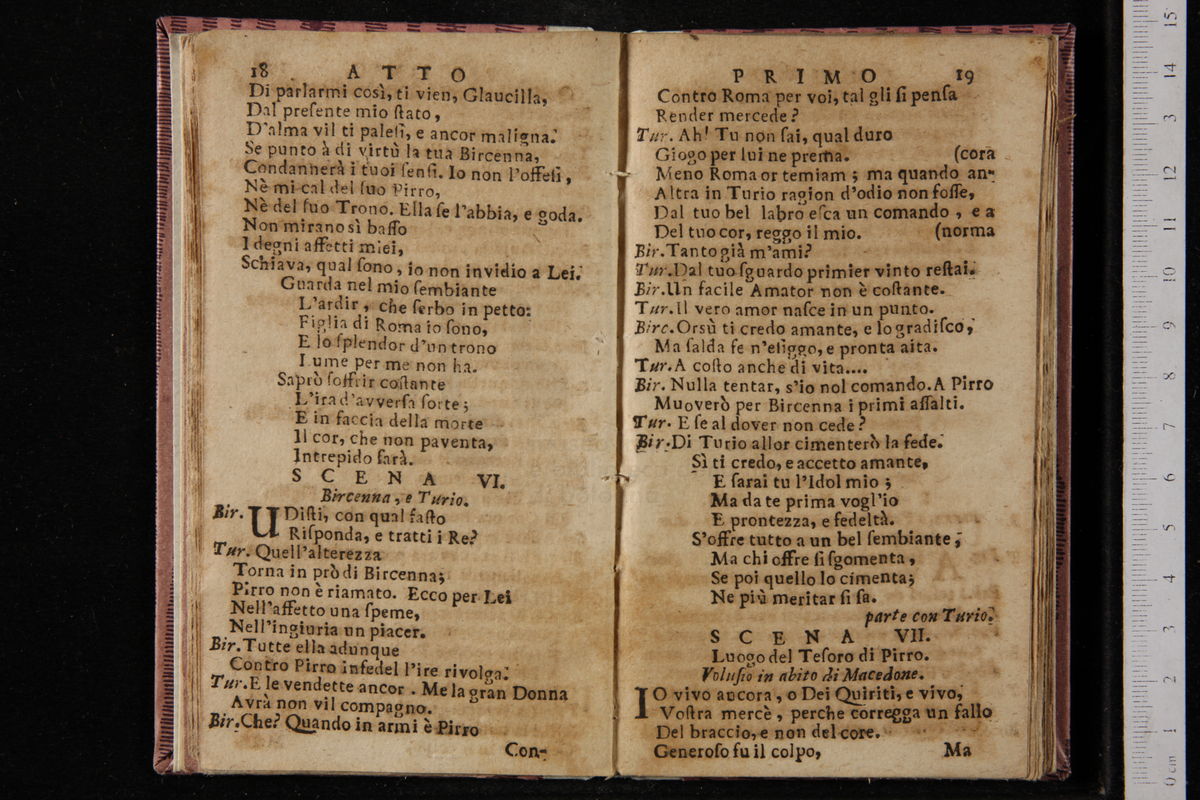 18 ATTO
Di parlarmi così, ti vien, Glaucilla,
Dal preſente mio ſtato,
D'alma vil ti paleſi, e ancor maligna.
Se punto à di virtù la tua Bircenna,
Condannerà i tuoi ſenſi. Io non l'offeſi,
Nè mi cal del ſuo Pirro,
Nè del ſuo Trono. Ella ſe l'abbia, e goda.
Non mirano sì baſſo
I degni affetti miei,
Schiava, qual ſono, io non invidio a Lei.
Guarda nel mio ſembiante
L'ardir, che ſerbo in petto:
Figlia di Roma io ſono,
E lo ſplendor d'un trono
Lume per me non ha.
Saprò ſoffrir coſtante
L'ira d'avverſa ſorte;
E in faccia della morte
Il cor, che non paventa,
Intrepido ſarà.
SCENA VI.
Bircenna, e Turio.
Bir. UDiſti, con qual faſto
Riſponda, e tratti i Re?
Tur. Quell'alterezza
Torna in prò di Bircenna;
Pirro non è riamato. Ecco per Lei
Nell'affetto una ſpeme,
Nell'ingiuria un piacer.
Bir. Tutte ella adunque
Contro Pirro infedel l'ire rivolga.
Tur. E le vendette ancor. Me la gran Donna
Avrà non vil compagno.
Bir. Che? Quando in armi è Pirro
Con-
PRIMO 19
Contro Roma per voi, tal gli ſi penſa
Render mercede?
Tur. Ah! Tu non ſai, qual duro
Giogo per lui ne prema. (cora
Meno Roma or temiam; ma quando an-
Altra in Turio ragion d'odio non foſſe,
Dal tuo bel labro eſca un comando, e a
Del tuo cor, reggo il mio. (norma
Bir. Tanto già m'ami?
Tur. Dal tuo ſguardo primier vinto reſtai.
Bir. Un facile Amator non è coſtante.
Tur. Il vero amor naſce in un punto.
Birc. Orsù ti credo amante, e lo gradiſco,
Ma ſalda fe n'eſiggo, e pronta aita.
Tur. A coſto anche di vita....
Bir. Nulla tentar, s'io nol comando. A Pirro
Muoverò per Bircenna i primi aſſalti.
Tur. E ſe al dover non cede?
Bir. Di Turio allor cimenterò la fede.
Sì ti credo, e accetto amante,
E ſarai tu l'Idol mio;
Ma da te prima vogl'io
E prontezza, e fedeltà.
S'offre tutto a un bel ſembiante;
Ma chi offre ſi ſgomenta,
Se poi quello lo cimenta;
Ne più meritar ſi ſa.
parte con Turio.
SCENA VII.
Luogo del Teſoro di Pirro.
Voluſio in abito di Macedone.
IO vivo ancora, o Dei Quiriti, e vivo,
Voſtra mercè, perche corregga un fallo
Del braccio, e non del core.
Generoſo fu il colpo,
Ma
0 cm 1 2 3 4 5 6 7 8 9 10 11 12 3 14 15